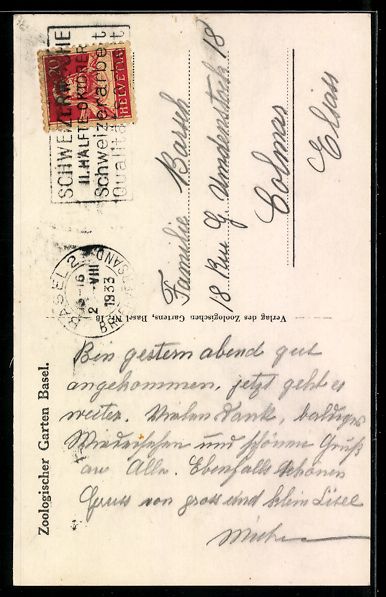 SCHWEIZERWOCHE
II. HÄLFTE OKTOBER
Schweizerarbeit
Qualitäts
20
HELVETIA
BASEL 2
BRIEFVERSAND
VIII
1933
Familie Basch
18 Rue G
18
Colmar
Elsass
Verlag des Zoologischen Gartens, Basel Nr. 18
Zoologischer Garten Basel.
Bin gestern abend gut
angekommen, jetzt geht es
weiter. Vielen Dank, baldiges
Wiedersehen und schöne Grüße
an Alle. Ebenfalls schönen
Gruss von gross und klein Lisel